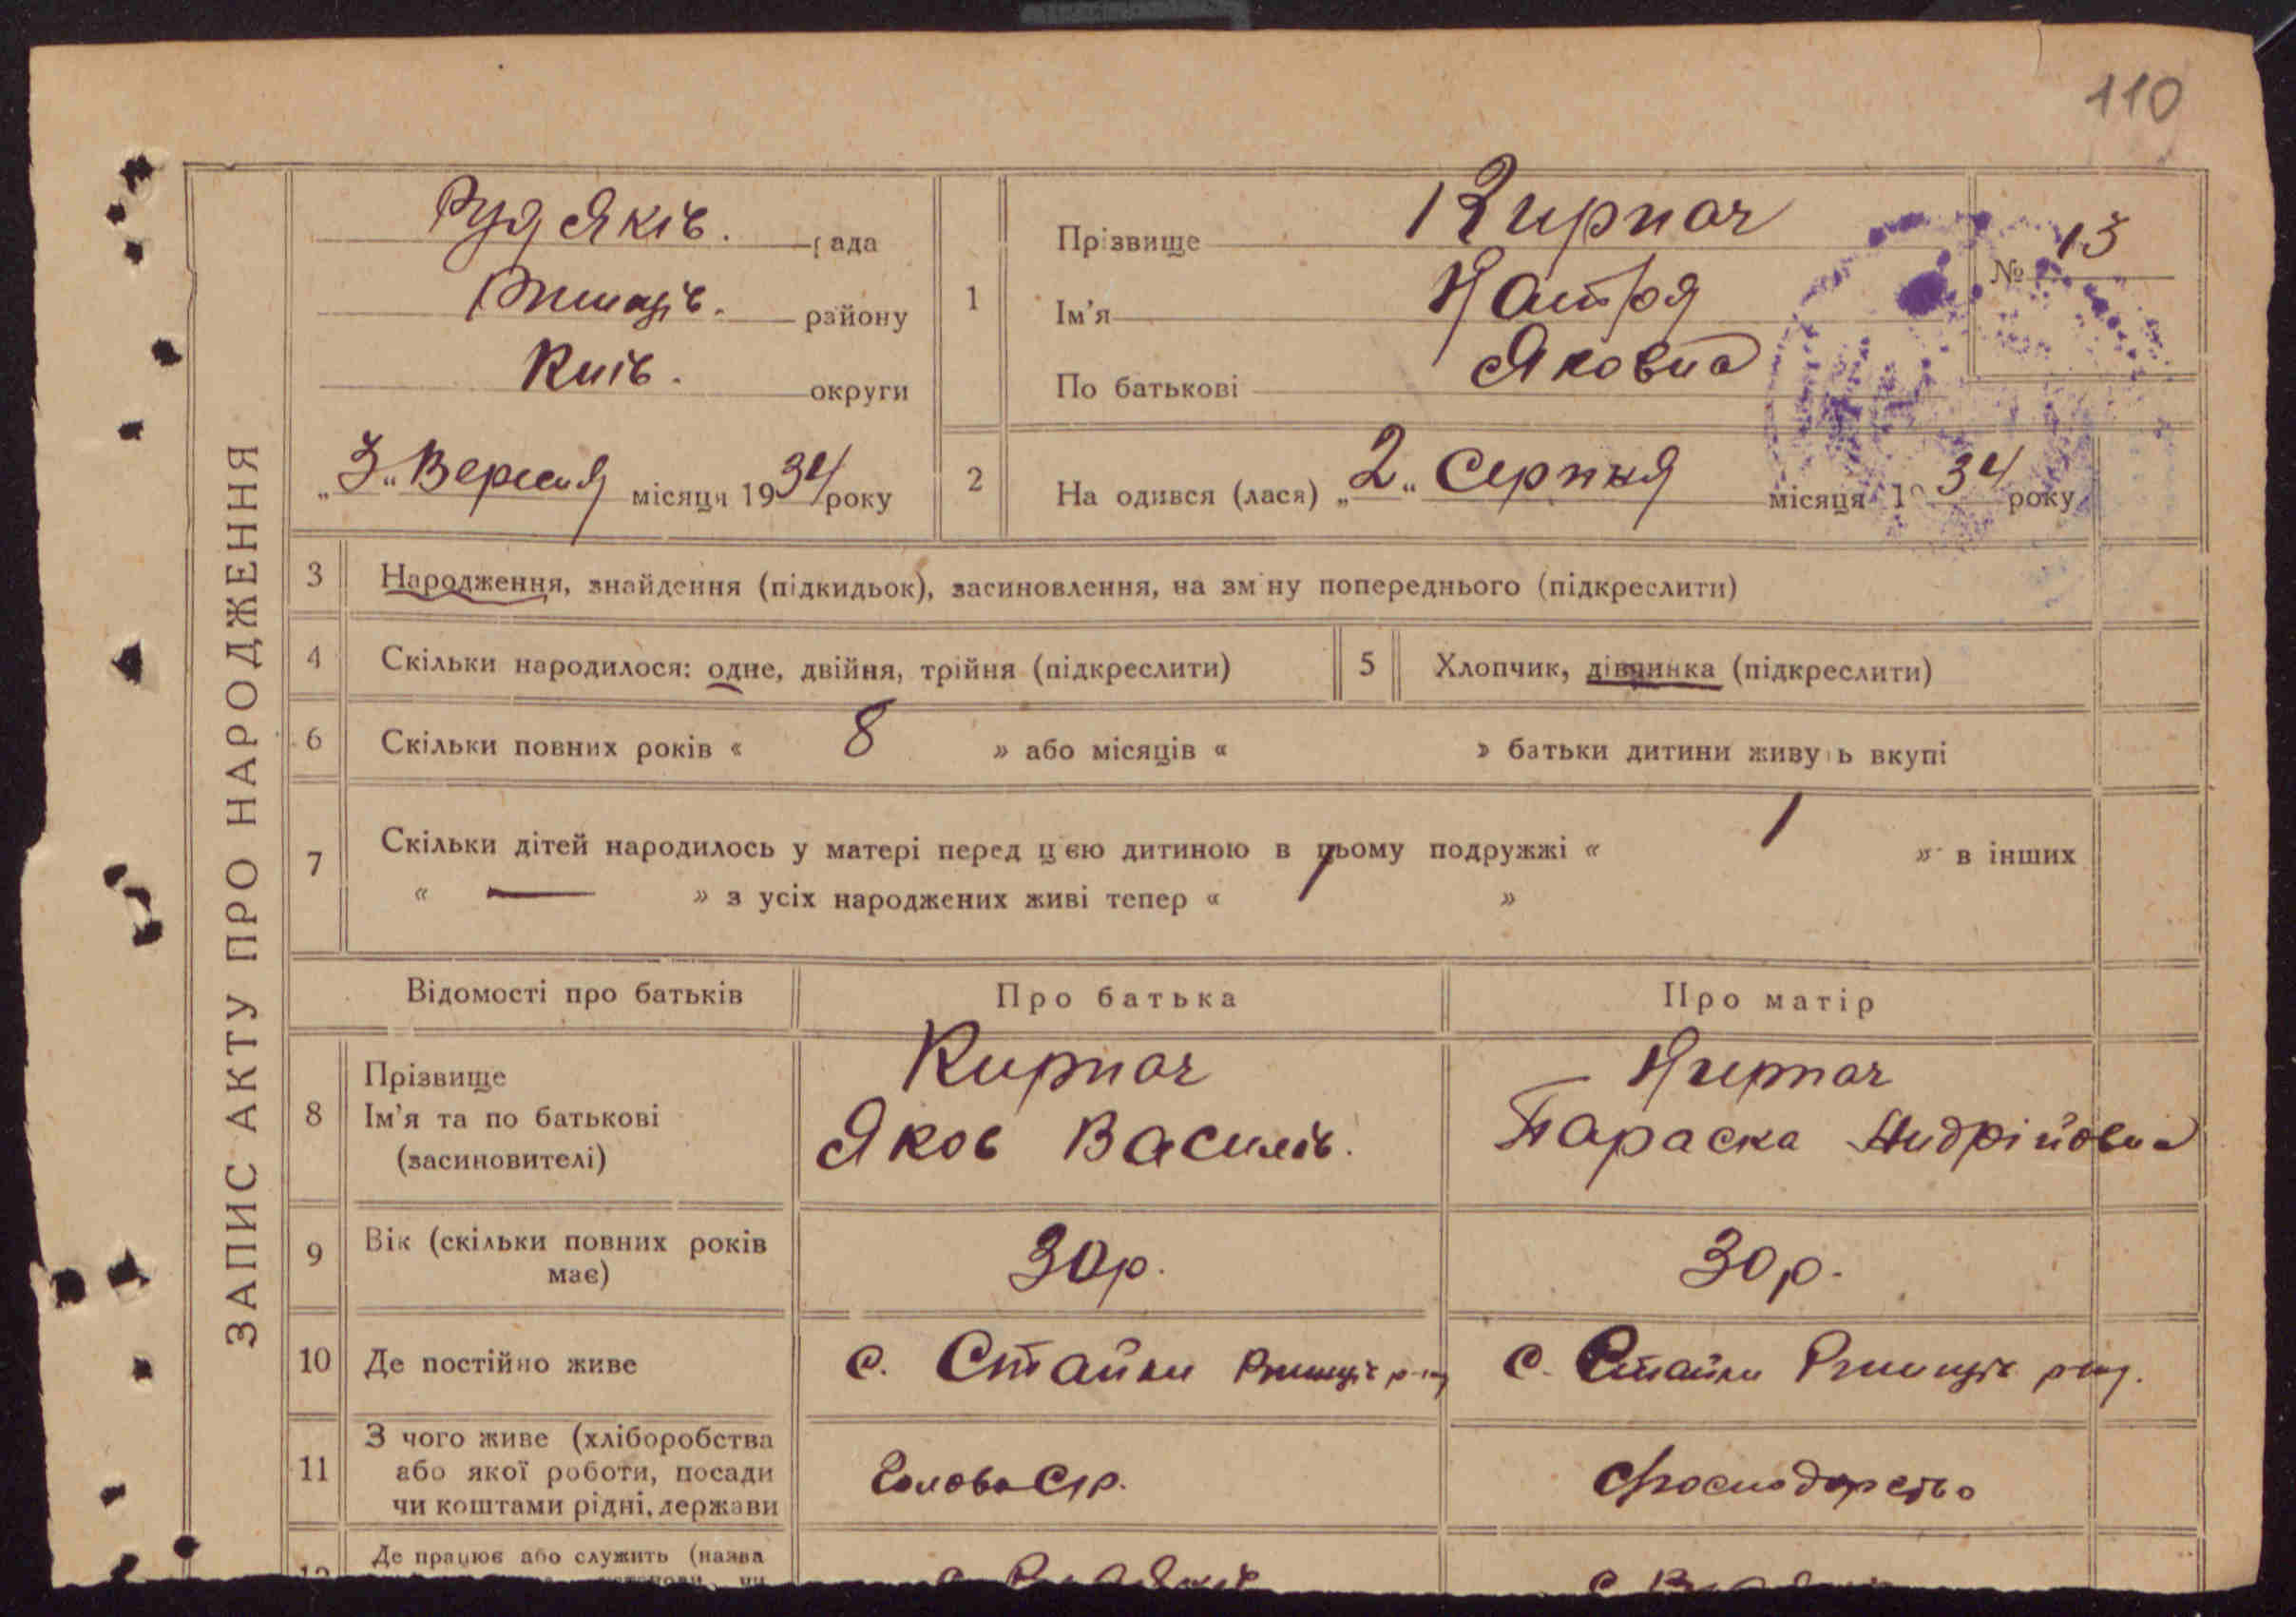 110
ЗАПИС АКТУ ПРО НАРОДЖЕННЯ
Рудяків. рада
Ржищів. району
Київ. округи
„3“ Вересня місяця 1934 року
1
Прізвище Кирпач
Ім'я Катря
По батькові Яковна
№ 13
2 На одився (лася) „2“ Серпня місяця 19 34 року
3 Народження, знайдення (підкидьок), засиновлення, на зміну попереднього (підкреслити)
4 Скільки народилося: одне, двійня, трійня (підкреслити)
5 Хлопчик, дівчинка (підкреслити)
6 Скільки повних років « 8 » або місяців « » батьки дитини живуть вкупі
7 Скільки дітей народилось у матері перед цією дитиною в цьому подружжі « 1 » в інших
« — » з усіх народжених живі тепер « 1 »
Відомості про батьків Про батька Про матір
8 Прізвище Кирпач Кирпач
Ім'я та по батькові Яков Василів. Параска Андрійовна
(засиновителі)
9 Вік (скільки повних років має) 30 р. 30 р.
10 Де постійно живе с. Стайки Ржищів р-ну с. Стайки Ржищів рну.
11 З чого живе (хліборобства
або якої роботи, посади
чи коштами рідні, держави
Голова С/р. Господарство
12 Де працює або служить (назва